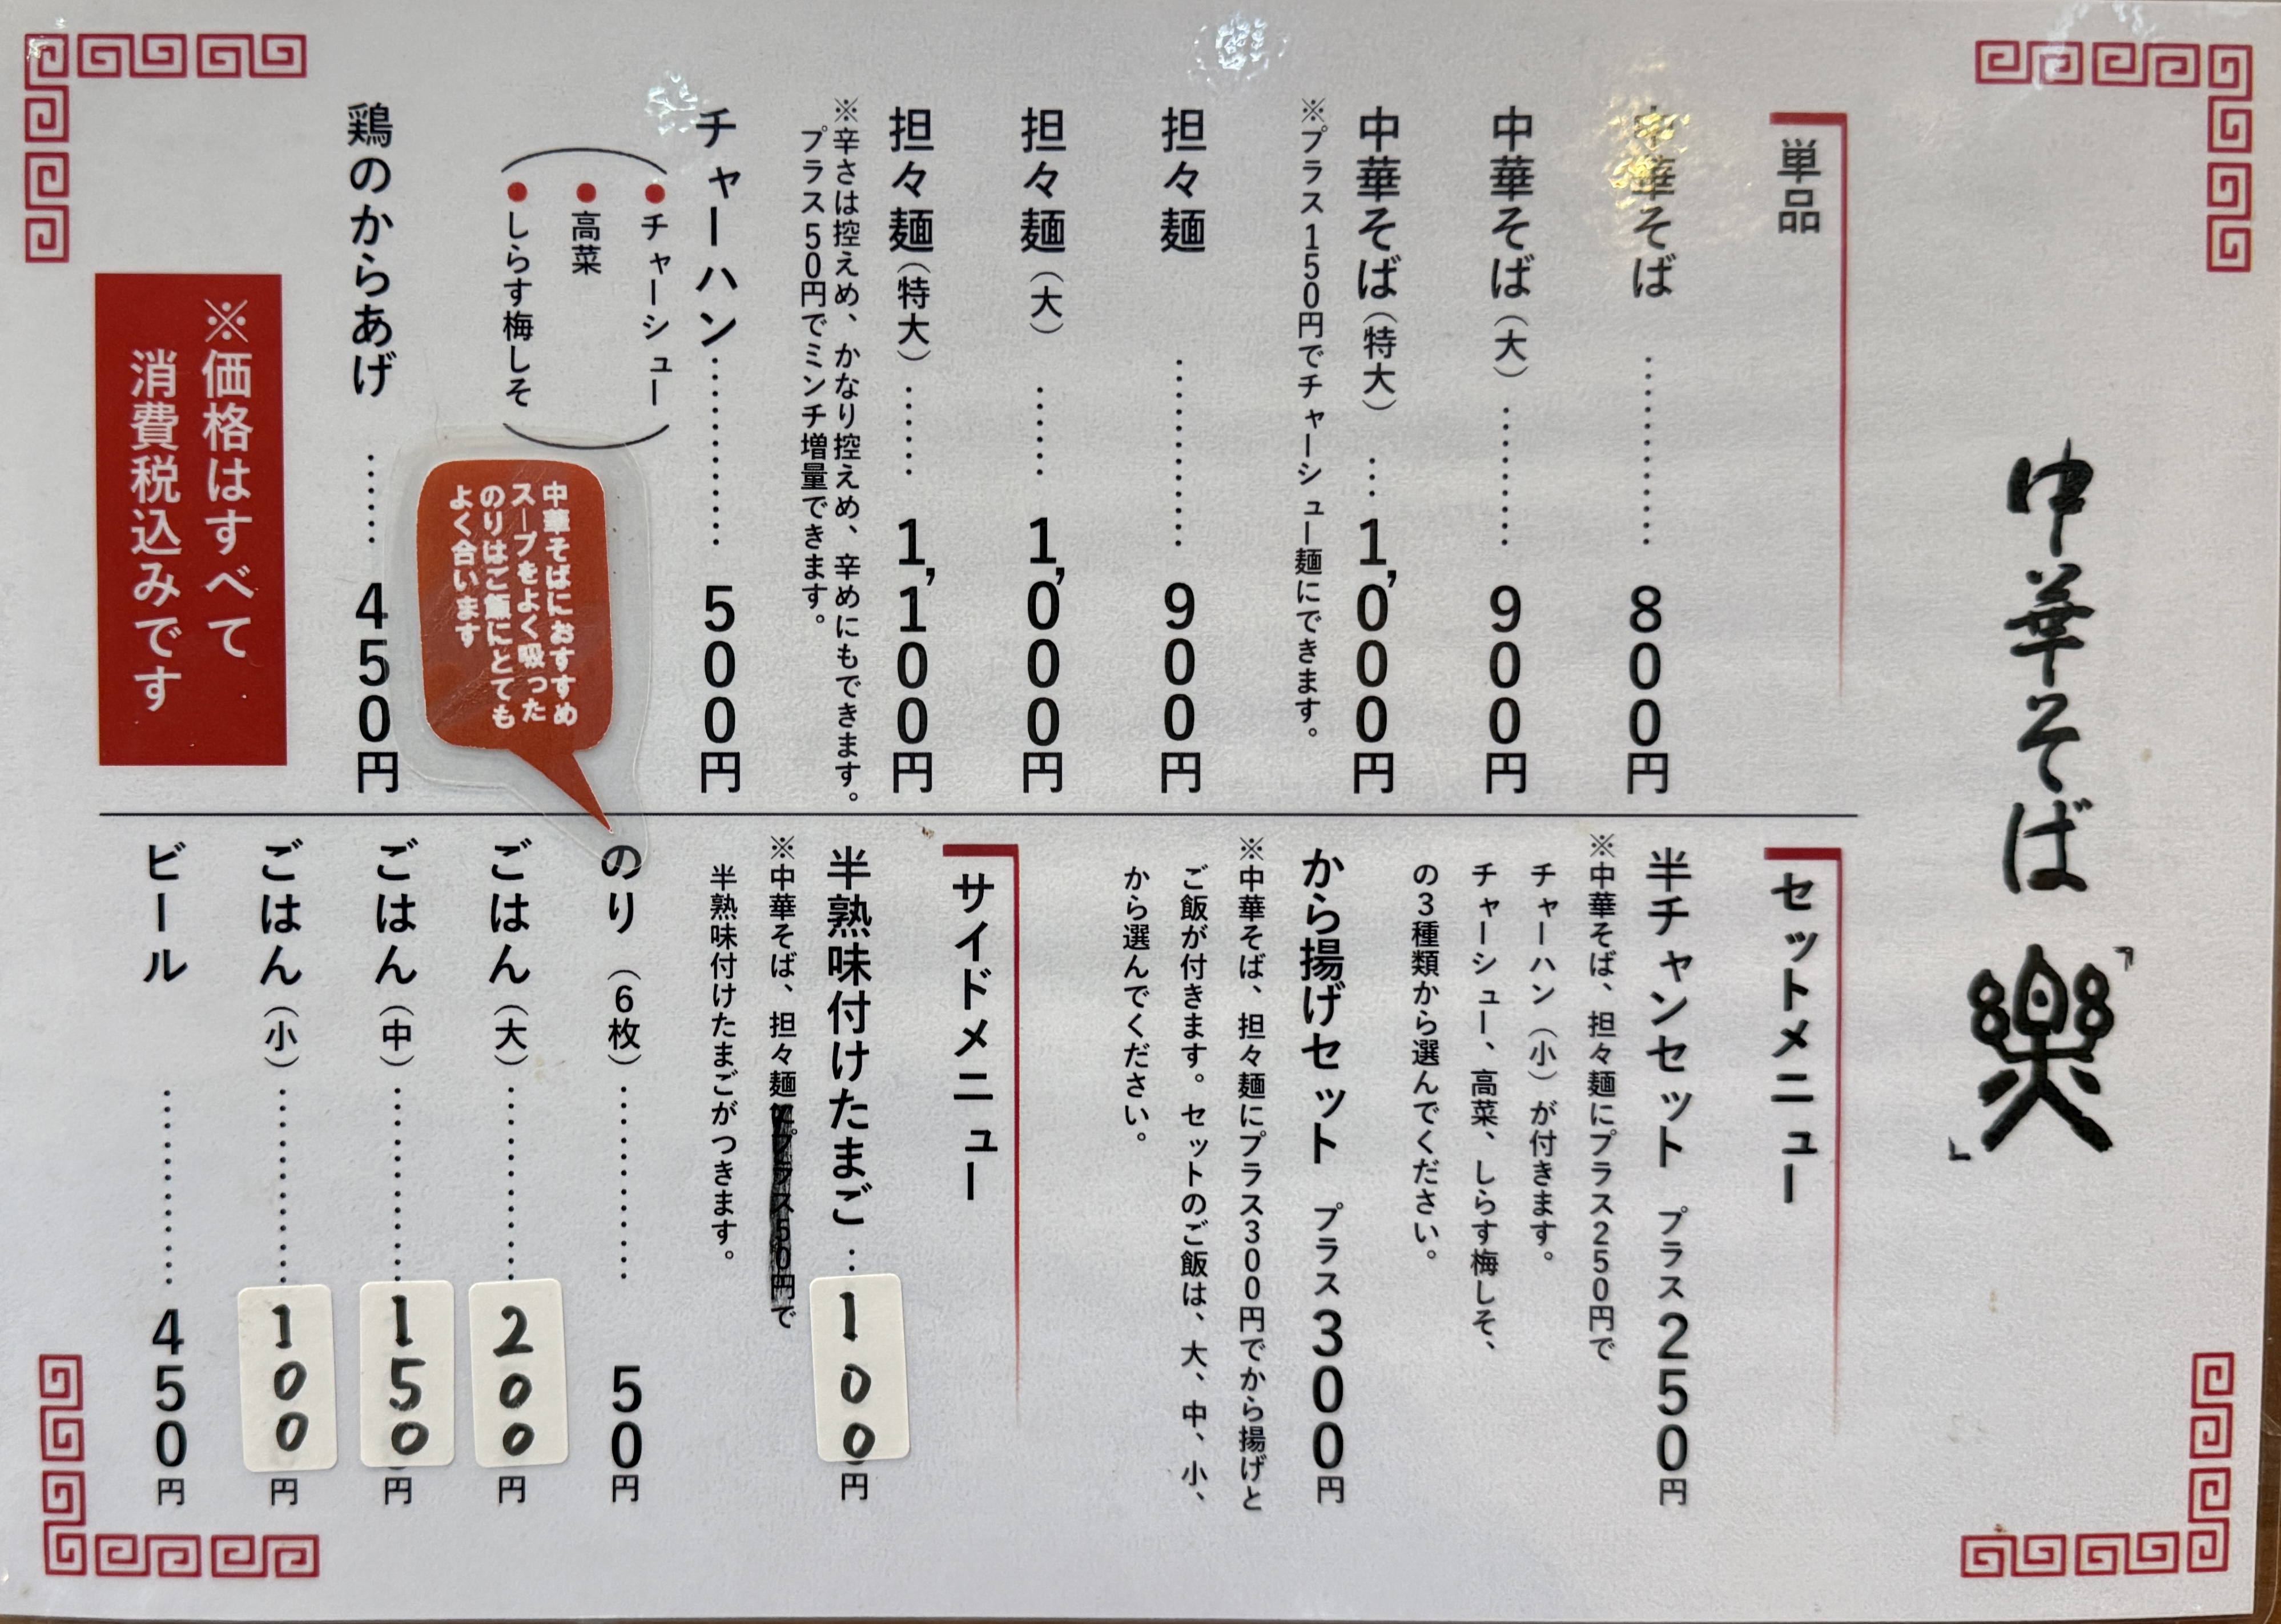 中華そば「樂」
単品
中華そば ………… 800円
中華そば（大） ……… 900円
中華そば（特大） … 1,000円
※プラス150円でチャーシュー麺にできます。
担々麺 ………… 900円
担々麺（大） …… 1,000円
担々麺（特大） …… 1,100円
※辛さは控えめ、かなり控えめ、辛めにもできます。
プラス50円でミンチ増量できます。
チャーハン………… 500円
（●チャーシュー
●高菜
●しらす梅しそ）
鶏のからあげ …… 450円
中華そばにおすすめ
スープをよく吸った
のりはご飯にとても
よく合います
※価格はすべて
消費税込みです
セットメニュー
半チャンセット プラス250円
※中華そば、担々麺にプラス250円で
チャーハン（小）が付きます。
チャーシュー、高菜、しらす梅しそ、
の3種類から選んでください。
から揚げセット プラス300円
※中華そば、担々麺にプラス300円でから揚げと
ご飯が付きます。セットのご飯は、大、中、小、
から選んでください。
サイドメニュー
半熟味付けたまご … 100円
※中華そば、担々麺にプラス50円で
半熟味付けたまごがつきます。
のり（6枚）………… 50円
ごはん（大）………… 200円
ごはん（中）………… 150円
ごはん（小）………… 100円
ビール ………… 450円